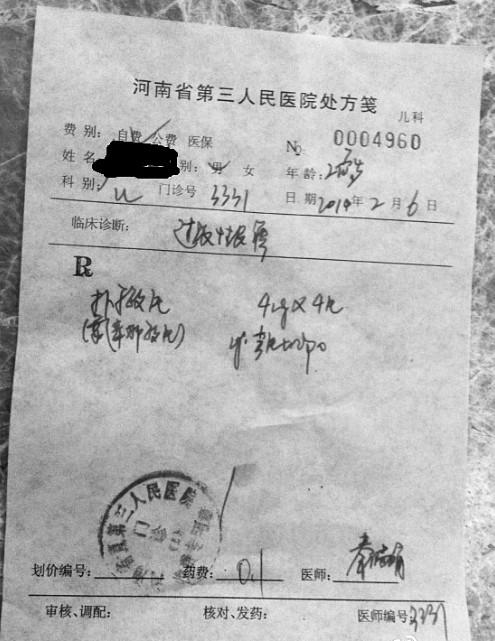 河南省第三人民医院处方笺
儿科
费别: 自费 公费 医保
№ 0004960
姓名 别: 男 女 年龄: 2岁
科别: 门诊号 3331 日期 2014年2月6日
临床诊断:
R
扑尔敏片 4mg×4片
(氯苯那敏片)
河南省第三人民医院
划价编号: 药费: 0.1 医师:
审核、调配: 核对、发药: 医师编号 3331